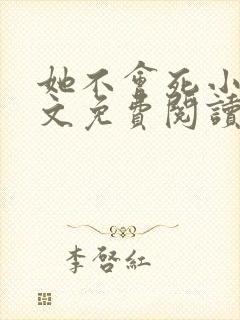 她不會死小
文免費閱讀
李啓紅